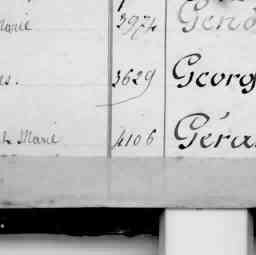 Marie 3974 Gend
es. 3629 Georg
Marie 4106 Géra